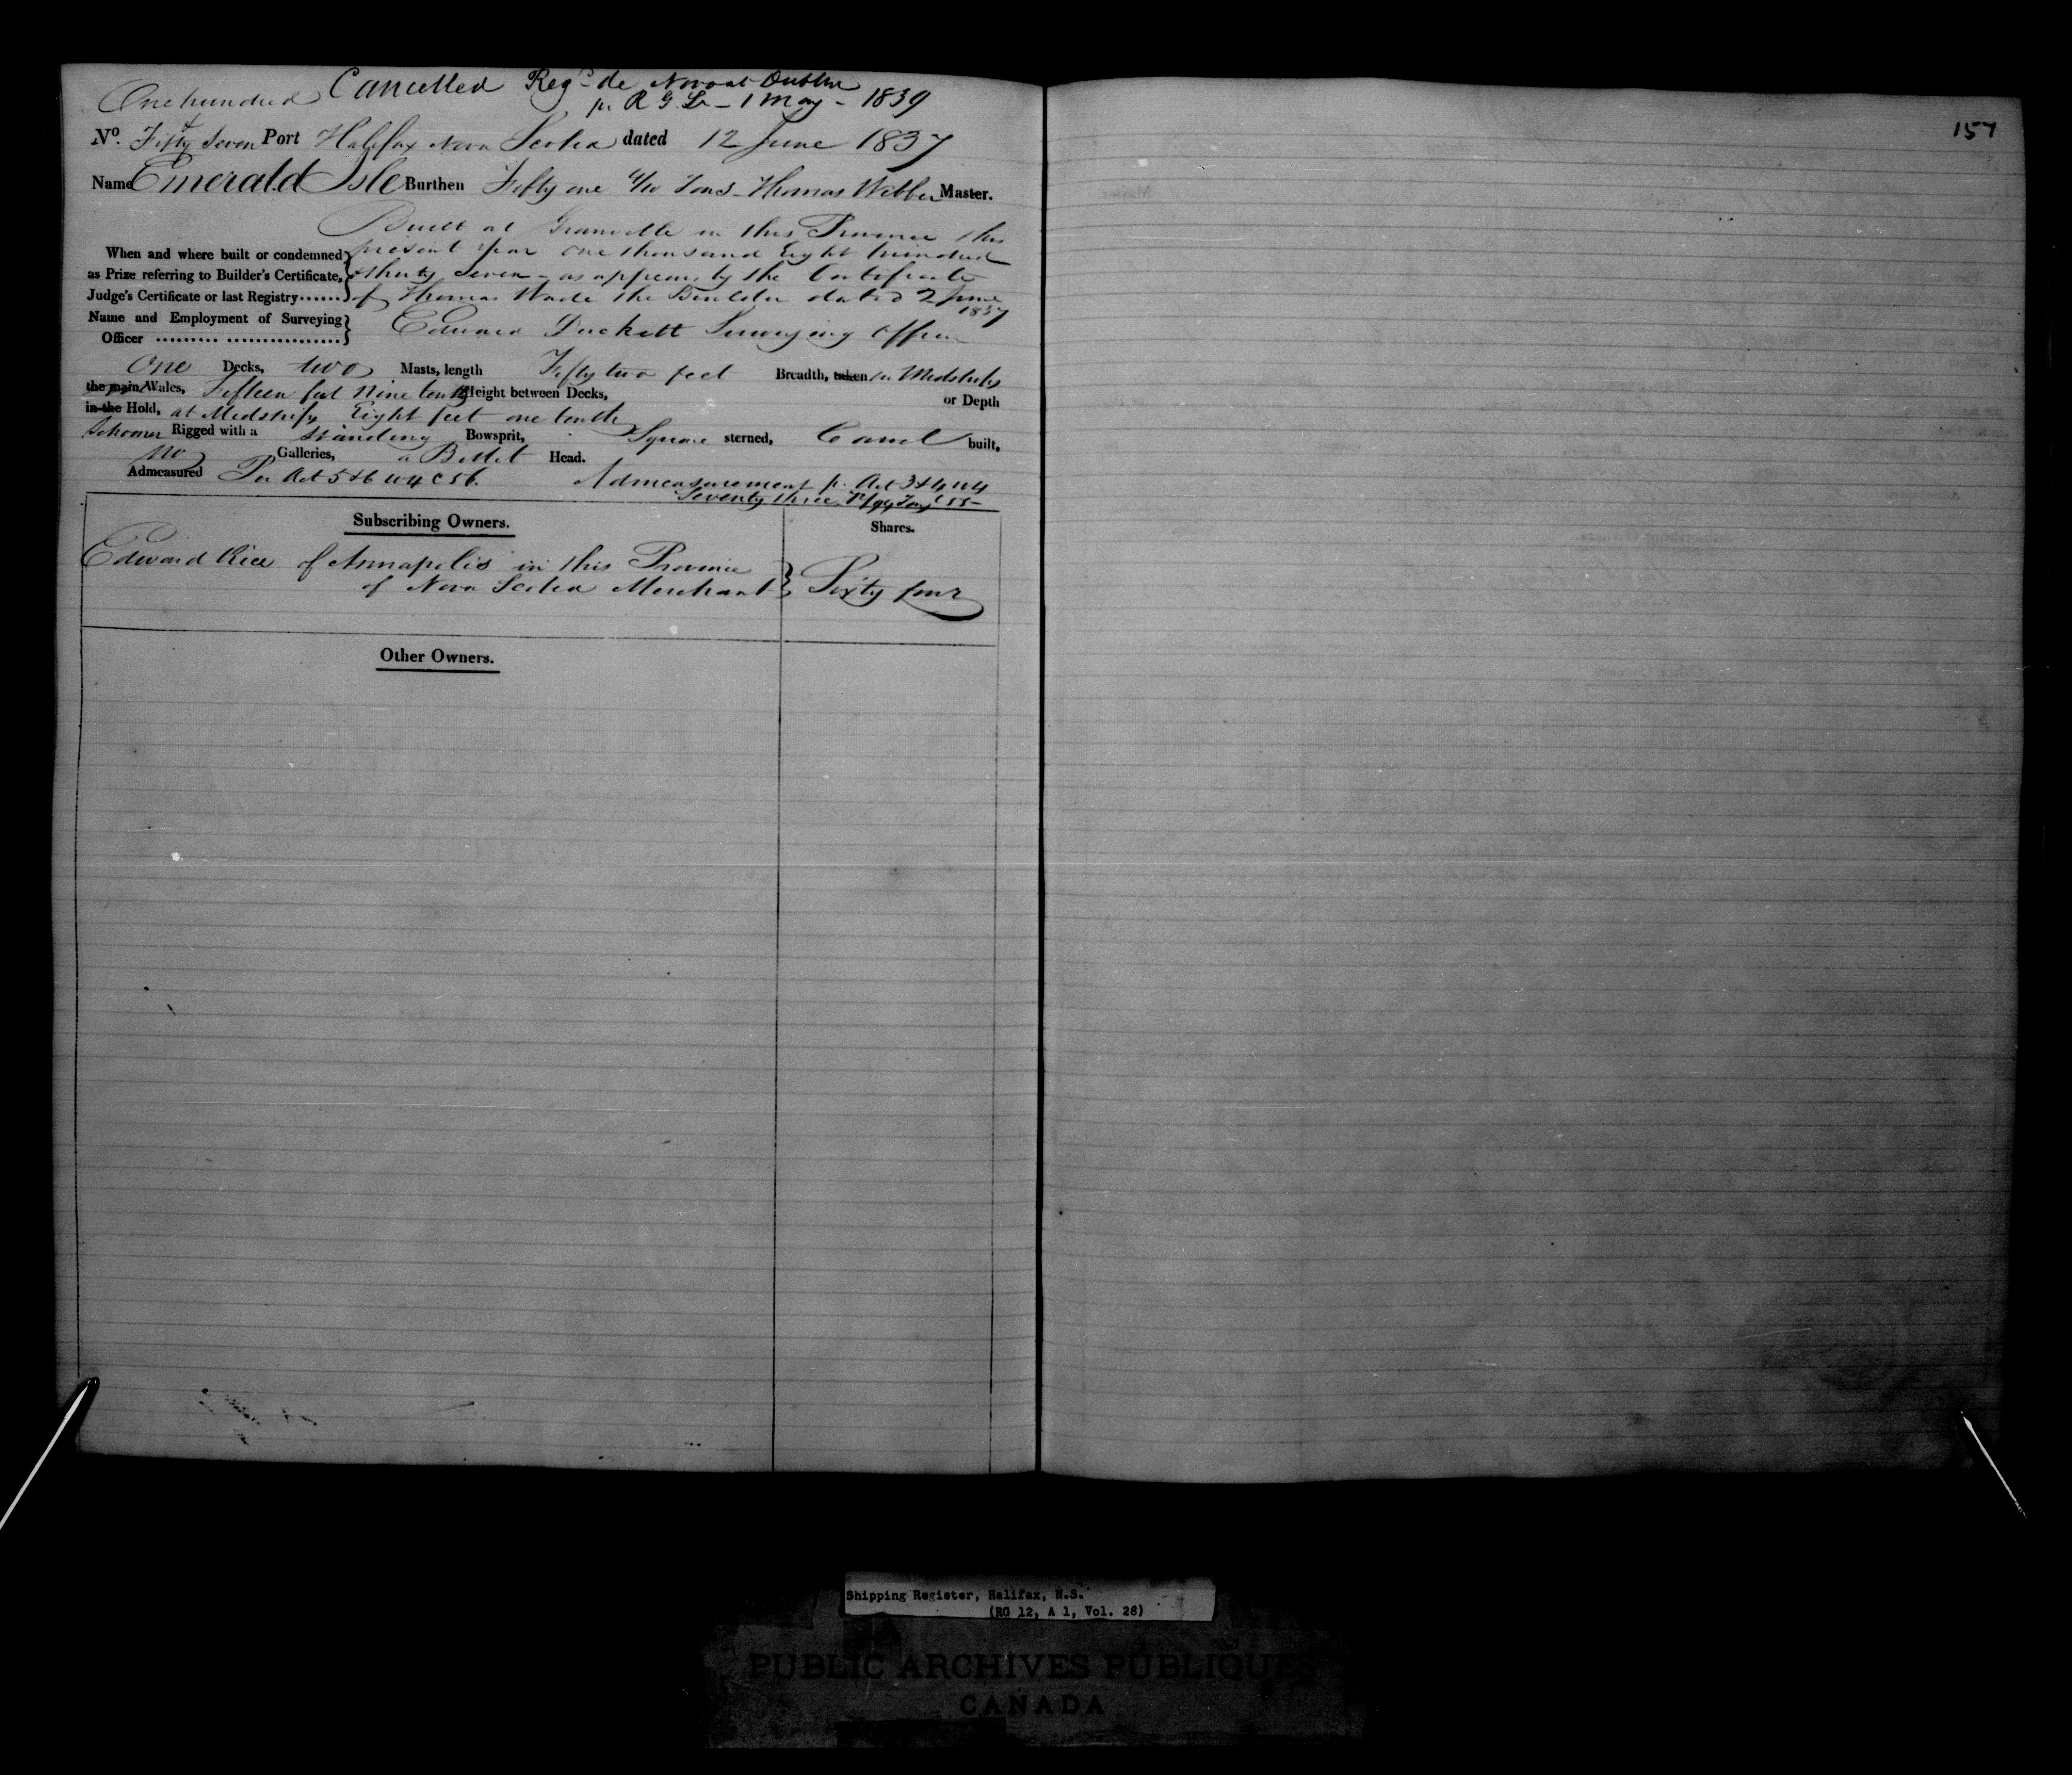 Cancelled Regd de Novo at Dublin
One hundred p. R G Lr - 1 May - 1839
157
& 
No. Fifty Seven Port Halifax Nova Scotia dated 12 June 1837
Name Emerald Isle Burthen Fifty one Tons Thomas Webber Master.
Built at Granville in this Province this
When and where built or condemned present Year One thousand Eight hundred
as Prize referring to Builder's Certificate, & thirty Seven - as appears by the Certificate
Judge's Certificate or last Registry...... of Thomas Wade the Builder dated 2 June
1837
Name and Employment of Surveying
Officer .......... ................. Edward Duckett Surveying Officer
One Decks, two Masts, length Fifty two feet Breadth, taken in Midships
the main Wales, Fifteen feet Nine tenths Height between Decks,
or Depth
in the Hold, at Midships Eight feet one tenth
Schooner Rigged with a Standing Bowsprit, Square sterned, Carvel built,
no Galleries, a Billet Head.
Admeasured Per Act 5 & 6 W 4 C 56. Admeasurement p. Act 3 & 4 W 4
Seventy three /94 Tons C 55 -
Subscribing Owners. Shares.
Edward Rice of Annapolis in this Province
of Nova Scotia Merchant Sixty four
Other Owners.
Shipping Register, Halifax, N.S.
(RG 12, A 1, Vol. 28)
PUBLIC ARCHIVES PUBLIQUES
CANADA